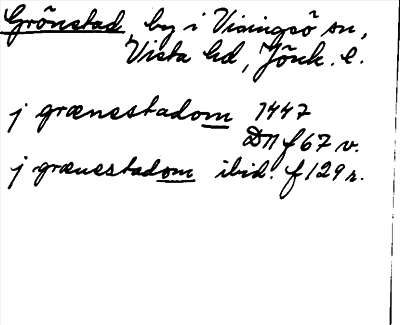 Grönstad, by i Visingsö sn,
Vista hd, Jönk. l.
j grænestadom 1447
DN f 67 v.
j grænestadom ibid. f 129 r.